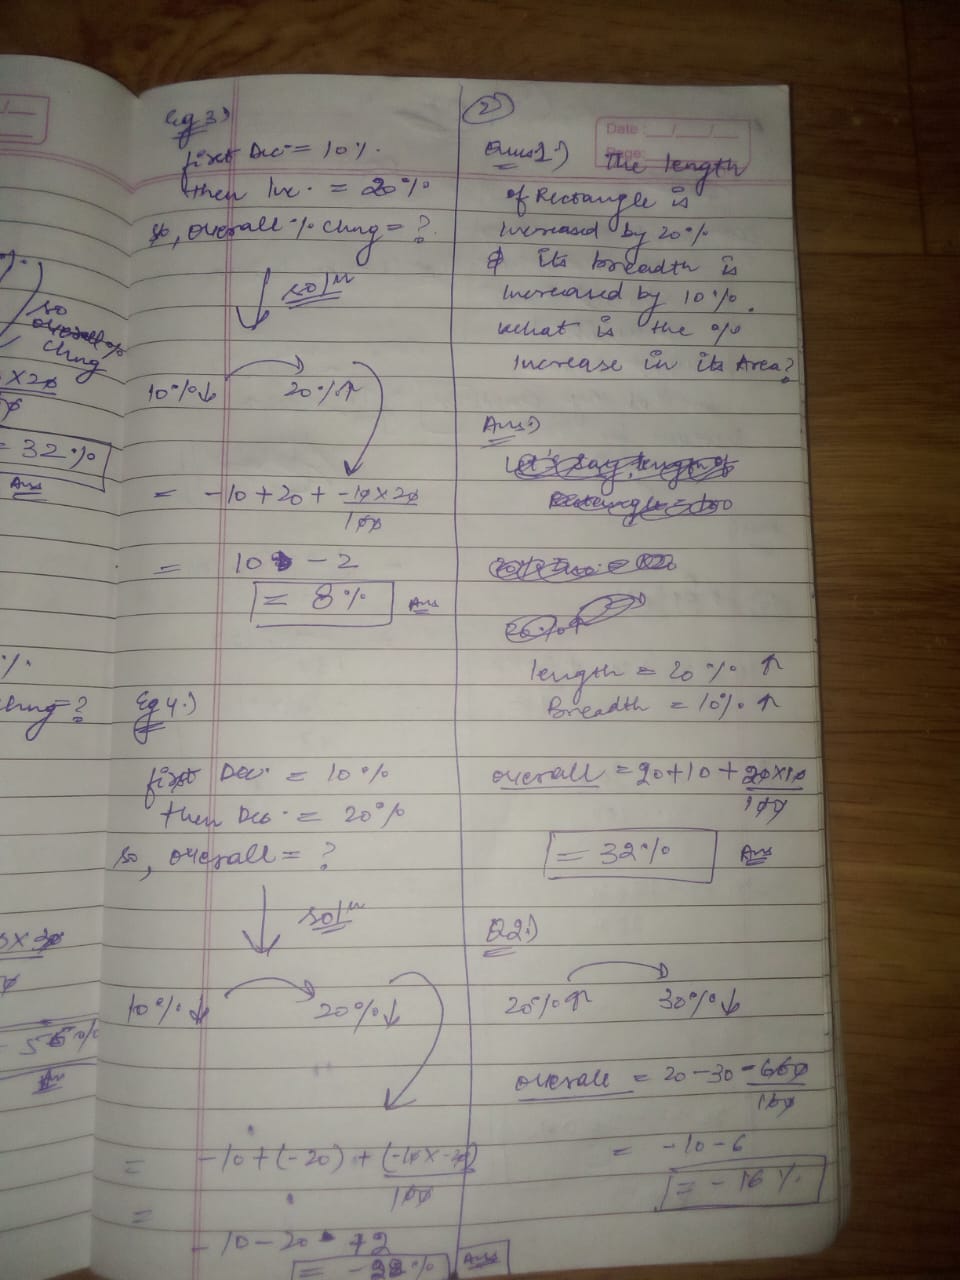 so
overall %
Chng
= 32%
Ans
Chng = ?
Ans
Eg 3.)
first Dec. = 10%.
then Inc. = 20%
so, overall % Chng = ?
solⁿ
10%↓ 20%↑
= -10 + 20 + -10 × 20
100
= 10 - 2
= 8%
Ans
Eg 4.)
first Dec. = 10%
then Dec. = 20%
so, overall = ?
solⁿ
10%↓ 20%↓
= -10 + (-20) + (-10 × -20)
100
=
-10 - 20 + 2
= -28%
Ans
2
Date : / /
Page:
Ques 1.) The length
of Rectangle is
Increased by 20%
& its breadth is
Increased by 10%.
what is the %
Increase in its Area?
Ans:)
Let's say, length of
Rectangle = 100
20%↑
length = 20% ↑
Breadth = 10% ↑
overall = 20 + 10 + 20 × 10
100
= 32%
Ans
Q2.)
20%↑ 30%↓
overall = 20 - 30 - 600
100
= -10 - 6
= -16%